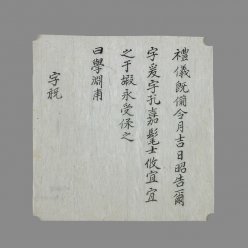 禮儀旣備令月吉日昭告爾
字爰字孔嘉髦士攸宜宜
之于嘏永受保之
曰學淵甫
字祝